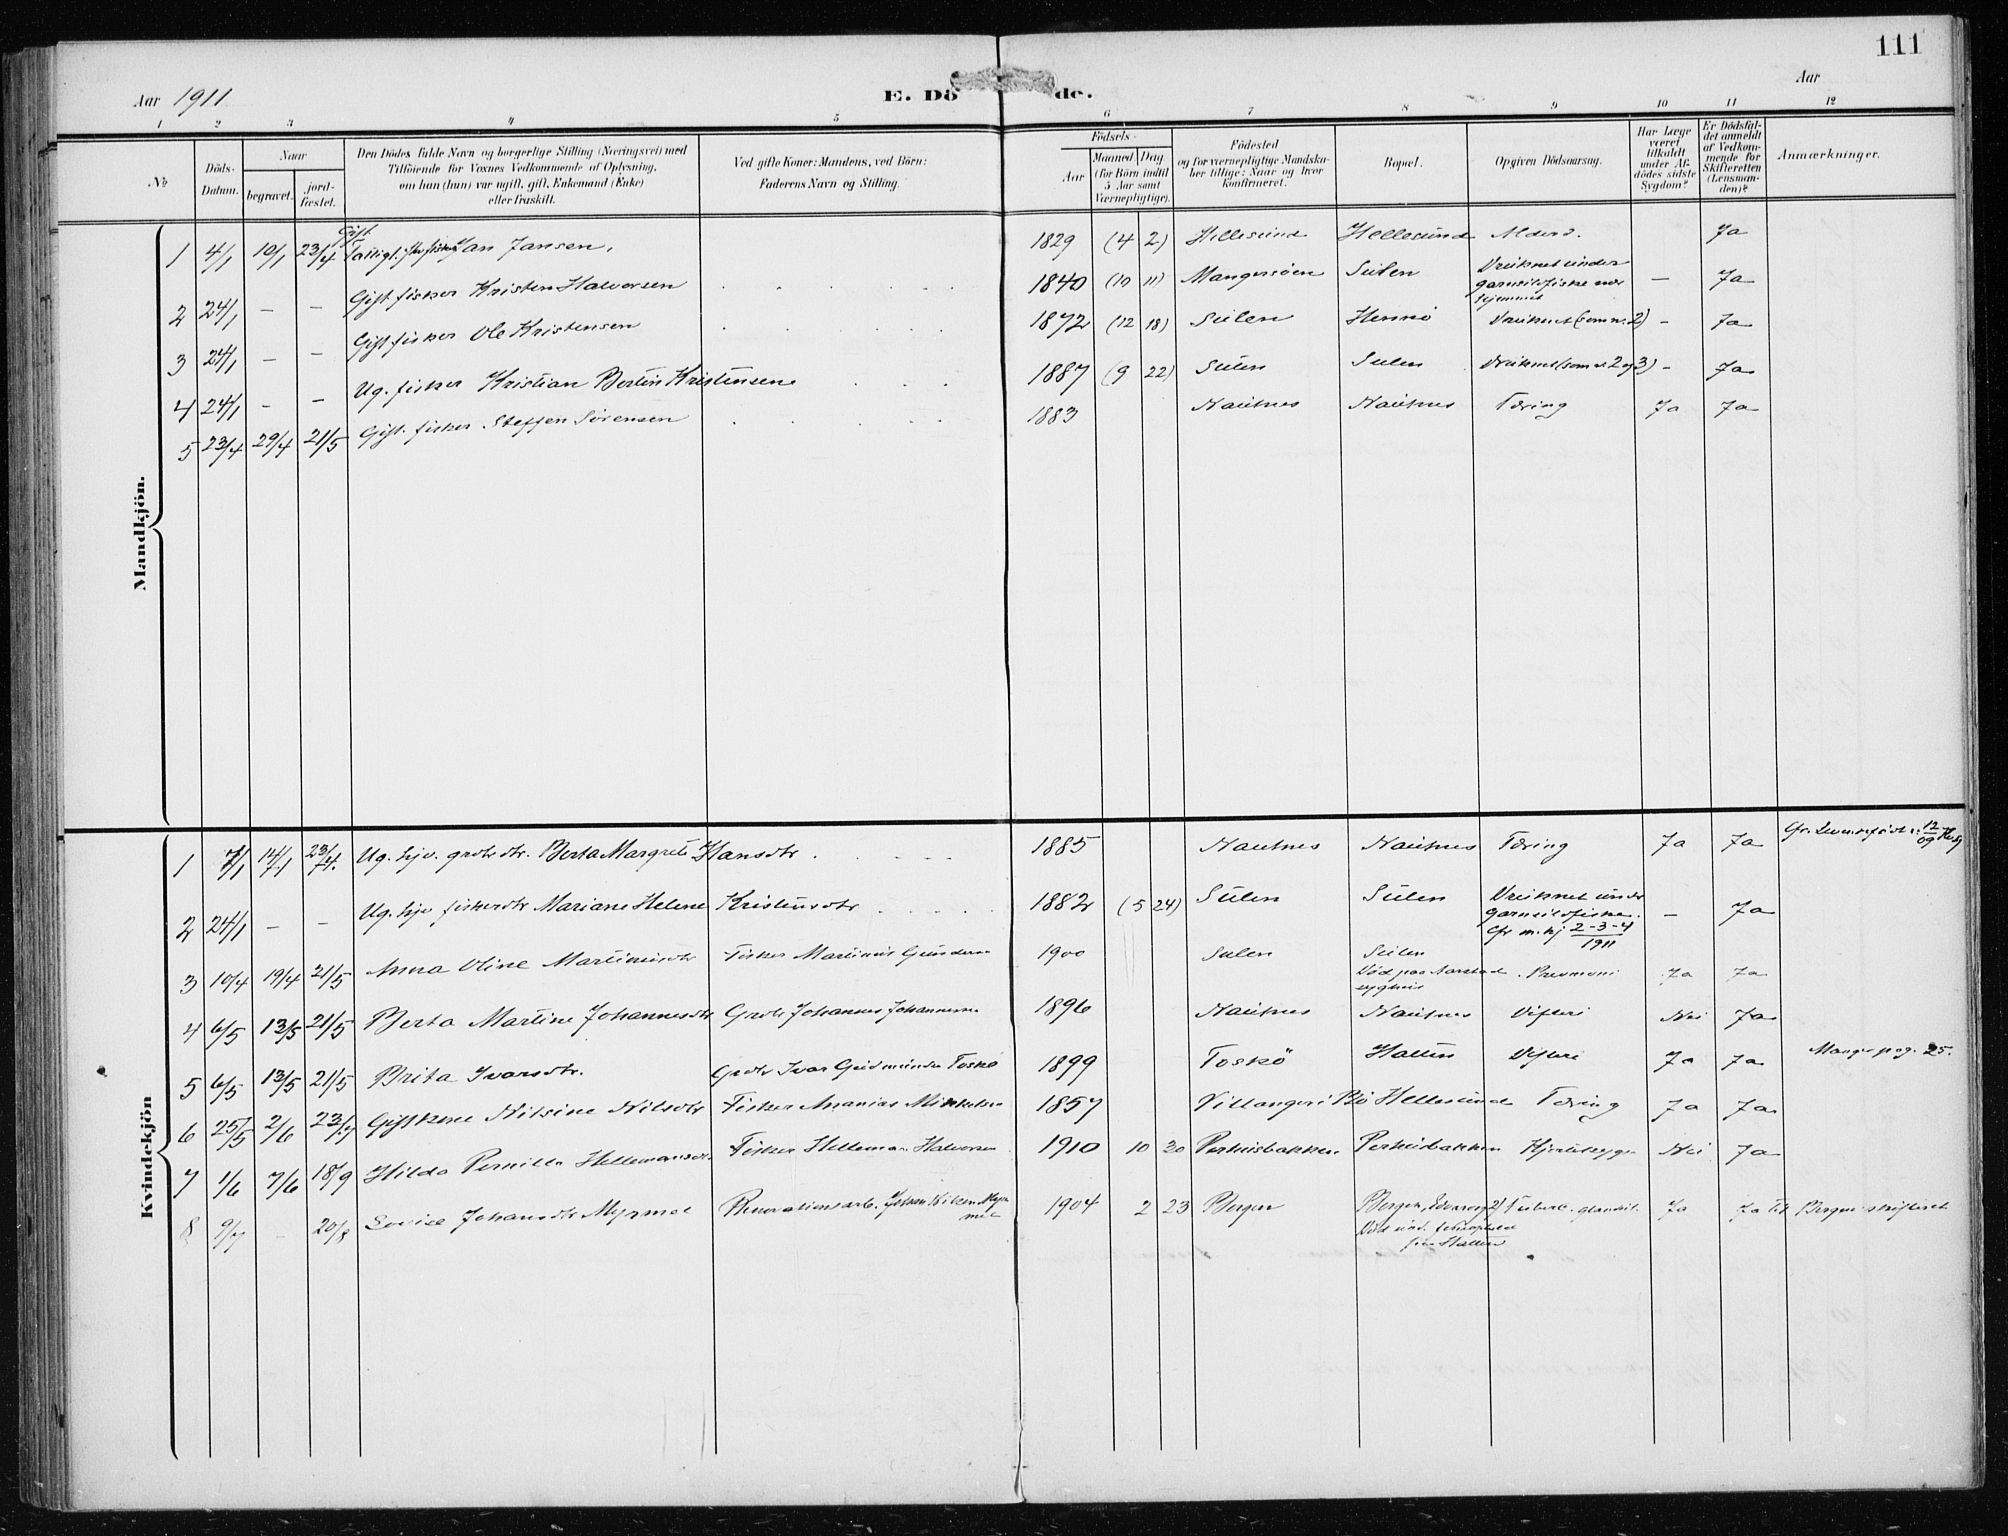 111
Aar 1911
E. Dö de.
Aar
1 2 3 4 5 6 7 8 9 10 11 12
№
Döds-Datum.
Naar
begravet.
jord-fæstet.
Den Dödes fulde Navn og borgerlige Stilling (Næringsvei) med
Tilföiende for Voxnes Vedkommende af Oplysning,
om han (hun) var ugift, gift, Enkemand (Enke)
eller fraskilt.
Ved gifte Koner: Mandens, ved Börn:
Faderens Navn og Stilling.
Födsels-
Aar
Maaned Dag
(for Börn indtil
5 Aar samt
Værnepligtige).
Födested
og for værnepligtige Mandska-
ber tillige: Naar og hvor
konfirmeret.
Bopæl.
Opgiven Dödsaarsag.
Har Læge
været
tilkaldt
under Af-
dödes sidste
Sygdom?
Er Dödsfal-
det anmeldt
af Vedkom-
mende for
Skifteretten
(Lensman-
den)?
Anmærkninger.
Mandkjön.
1 4/1 10/1 23/4 Gift Fattigl. Jan Jansen. 1829 (4 2) Hellesund Hellesund Alderd. Ja
2 24/1 – – Gift fisker Kristen Halvorsen 1840 (10 11) Mangersöen Sulen Druknet under garnsildfiske hjemmet – Ja
3 24/1 – – Gift fisker Ole Kristensen 1872 (12 18) Sulen Hernö Druknet (som n. 2) – Ja
4 24/1 – – Ug. fisker Kristian Bertin Kristensen 1887 (9 22) Sulen Sulen Druknet (som n. 2 og 3) – Ja
5 23/4 29/4 21/5 Gift. fisker Steffen Sörensen 1883 Nautnes Nautnes Tæring Ja Ja
Kvindekjön
1 7/1 14/1 23/4. Ug. hjv. grdbr. dtr. Berta Margrete Hansdtr 1885 Nautnes Nautnes Tæring Ja Ja Cfr. 12/09
2 24/1 – – Ug. hjv fiskerdtr Mariane Helene Kristensdtr 1882 (5 24) Sulen Sulen Druknet under garnsildfiske. Cfr m.kj 2-3-4 1911 – Ja
3 10/4 19/4 21/5 Anna Oline Martinusdtr Fisker Martinus Gundersen 1900 Sulen Sulen Död paa Aarstad syghus Pneumoni Ja Ja
4 6/5 13/5 21/5 Berta Martine Johannesdtr Grdbr Johannes Johannesen 1896 Nautnes Nautnes Difteri Nei Ja
5 6/5 13/5 21/5 Brita Ivarsdtr. Grdbr Ivar Gudmundsen Toskö 1899 Toskö Hatten Difteri Ja Ja Manger pag. 25.
6 25/5 2/6 23/7 Gift kone Nilsine Nilsdtr Fisker Ananias Mikkelsen 1857 Villanger i Bö Hellesund Tæring Ja Ja
7 1/6 7/6 18/9 Hilda Pernille Hellemansdtr. Fisker Helleman Halvorsen 1910 10 30 Perhusbakken Perhusbakken Hjertesygd. Nei Ja
8 9/7 – 20/8 Lovise Johansdtr Myrmel Renovationsarb. Johan Myrmel 1904 2 23 Bergen Bergen, Död und. ferieophold paa Hatten Tuberk. glandul. Ja Ja Til Bergens skifteret